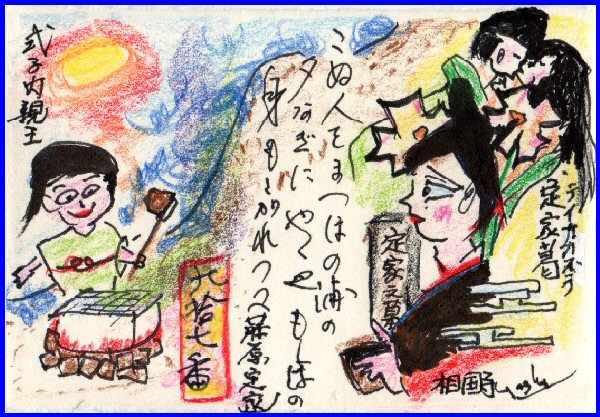 テイカカズラ
定家葛
定家之墓
こぬ人をまつほの浦の
夕なぎにやくやもしほの
身もこがれつつ 藤原定家
九拾七番
式子内親王